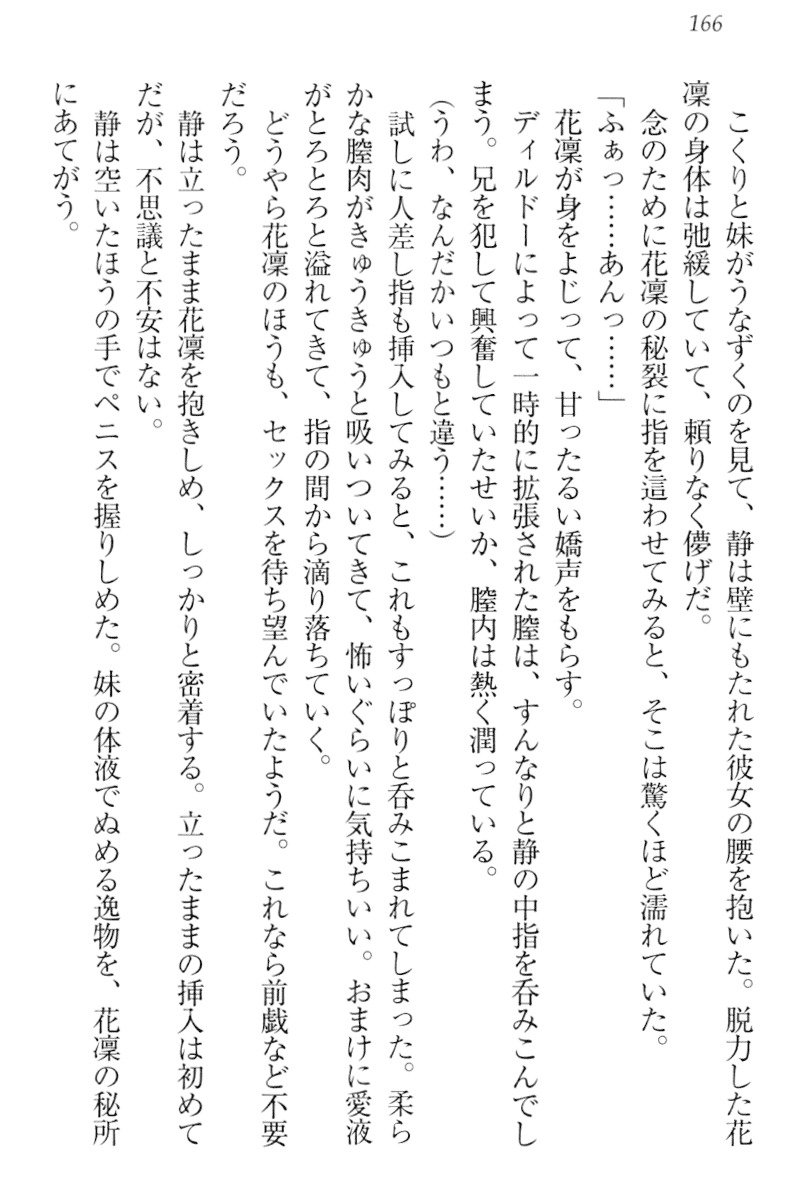 166
こくりと妹がうなずくのを見て、静は壁にもたれた彼女の腰を抱いた。脱力した花
凛の身体は弛緩していて、頼りなく儚げだ。
念のために花凛の秘裂に指を這わせてみると、そこは驚くほど濡れていた。
「ふぁっ……あんっ……」
花凛が身をよじって、甘ったるい嬌声をもらす。
ディルドーによって一時的に拡張された膣は、すんなりと静の中指を呑みこんでし
まう。兄を犯して興奮していたせいか、膣内は熱く潤っている。
(うわ、なんだかいつもと違う……)
試しに人差し指も挿入してみると、これもすっぽりと呑みこまれてしまった。柔ら
かな膣肉がきゅうきゅうと吸いついてきて、怖いぐらいに気持ちいい。おまけに愛液
がとろとろと溢れてきて、指の間から滴り落ちていく。
どうやら花凛のほうも、セックスを待ち望んでいたようだ。これなら前戯など不要
だろう。
静は立ったまま花凛を抱きしめ、しっかりと密着する。立ったままの挿入は初めて
だが、不思議と不安はない。
静は空いたほうの手でペニスを握りしめた。妹の体液でぬめる逸物を、花凛の秘所
にあてがう。